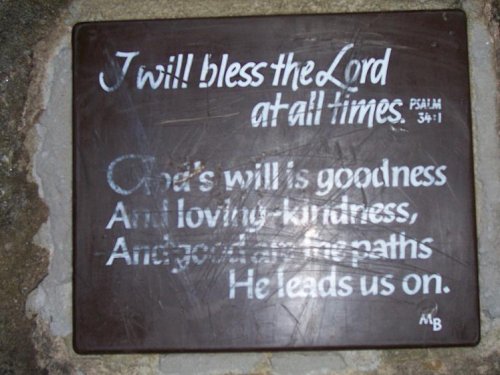 I will bless the Lord
at all times. PSALM
34:1
God's will is goodness
And loving-kindness,
And good are the paths
He leads us on.
MB